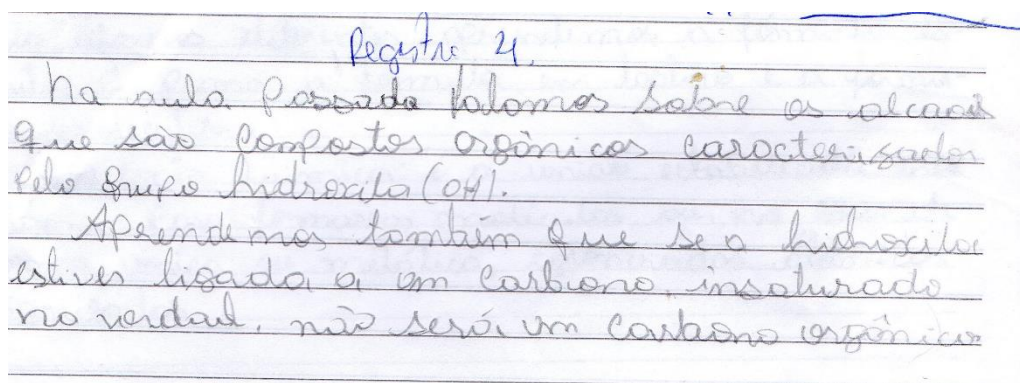 Registro 4.
Na aula Passada falamos sobre os alcoois
que são compostos orgânicos caracterizados
pelo grupo hidroxila (OH).
Aprendemos também que se a hidroxila
estiver ligada a um carbono insaturado
na verdade não será um carbono orgânico